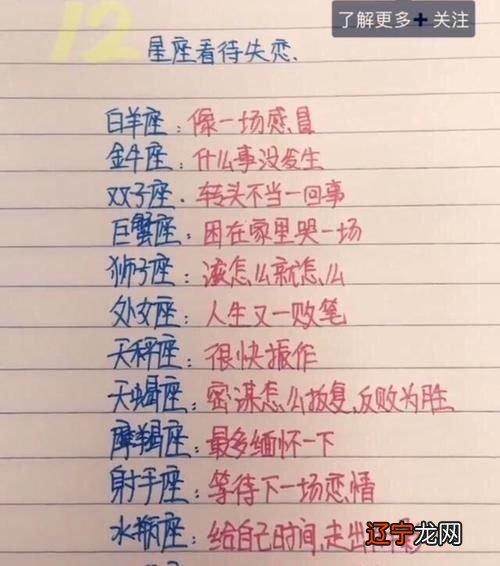 了解更多+ 关注
12
星座看待失恋.
白羊座：像一场感冒
金牛座：什么事没发生
双子座．转头不当一回事
巨蟹座：困在家里哭一场
狮子座：该怎么就怎么
处女座：人生又一败笔
天秤座：很快振作
天蝎座：密谋怎么报复,反败为胜
摩羯座：最多缅怀一下
射手座：等待下一场恋情
水瓶座：给自己时间,走出
辽宁龙网